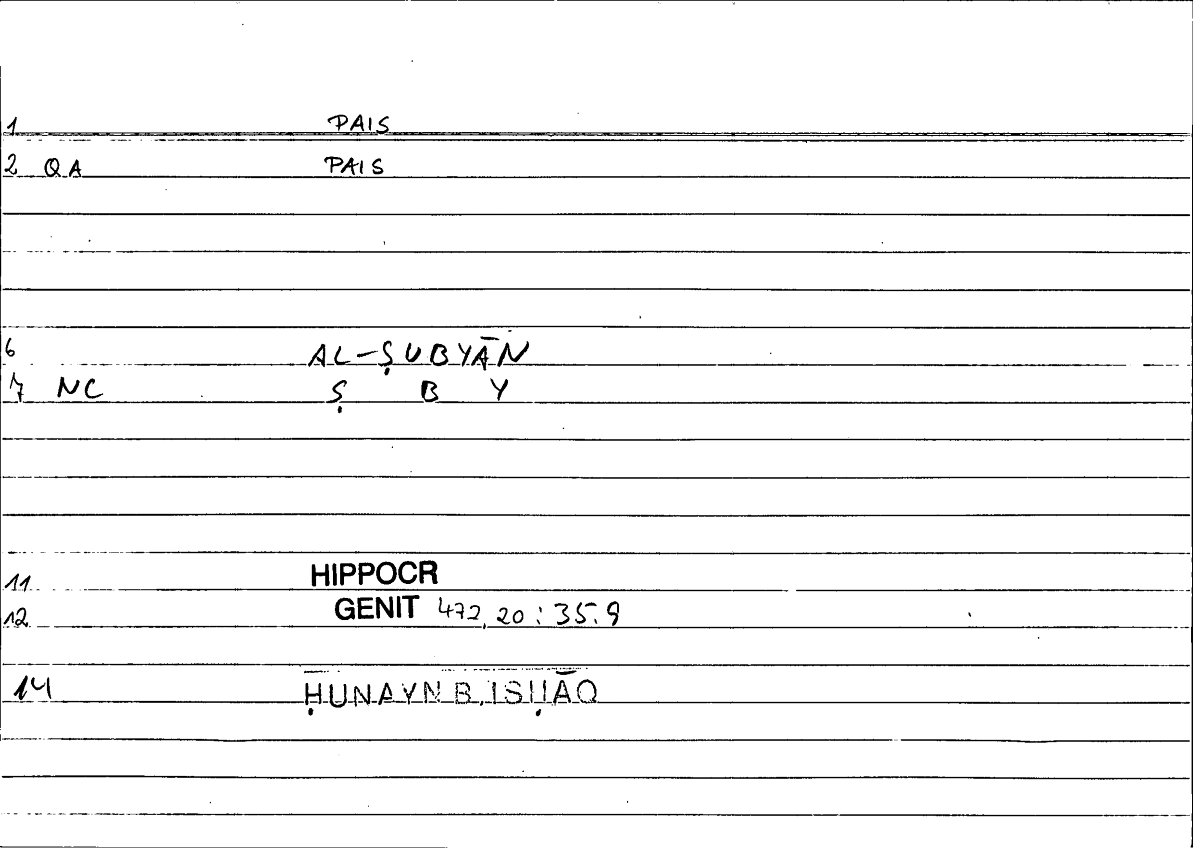 1 PAIS
2 QA PAIS
6 AL-ṢUBYĀN
7 NC Ṣ B Y
11 HIPPOCR
12 GENIT 472,20 : 35.9
14 ḤUNAYN B. ISḤĀQ